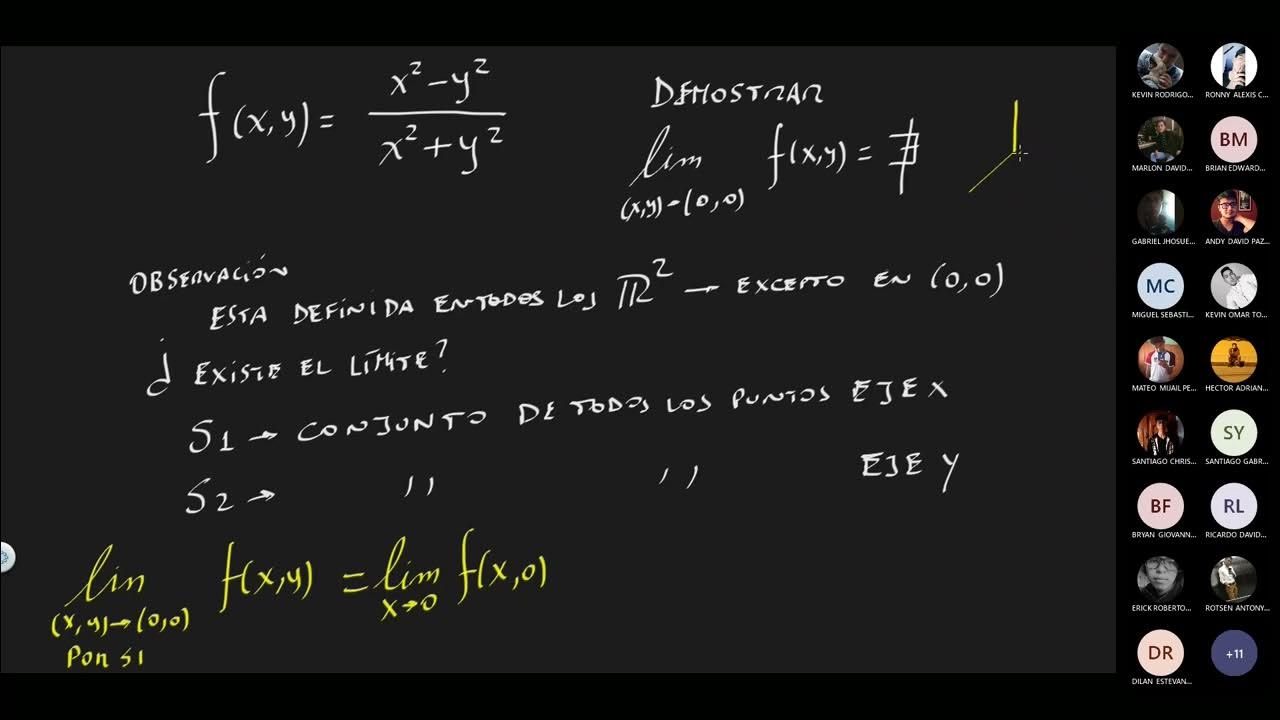 f(x,y) = x² - y² / x² + y²
DEMOSTRAR
lim f(x,y) = ∄
(x,y) → (0,0)
OBSERVACIÓN
ESTA DEFINIDA EN TODOS LOS ℝ² → EXCEPTO EN (0,0)
¿ EXISTE EL LÍMITE?
S1 → CONJUNTO DE TODOS LOS PUNTOS EJE X
S2 → ,, ,, EJE Y
lim f(x,y) = lim f(x,0)
(x,y) → (0,0) x→0
Por S1
KEVIN RODRIGO... RONNY ALEXIS C...
BM
MARLON DAVID... BRIAN EDWARD...
GABRIEL JHOSUE... ANDY DAVID PAZ...
MC
MIGUEL SEBASTI... KEVIN OMAR TO...
MATEO MIJAIL PE... HECTOR ADRIAN...
SY
SANTIAGO CHRIS... SANTIAGO GABR...
BF RL
BRYAN GIOVANN... RICARDO DAVID...
ERICK ROBERTO... ROTSEN ANTONY...
DR +11
DILAN ESTEVAN...